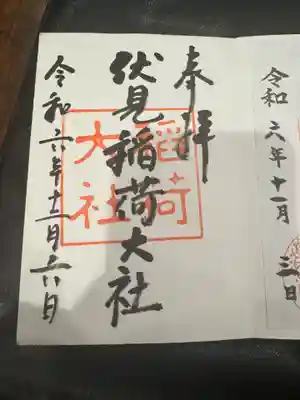 令和六年十一月三日
奉拝
伏見稲荷大社
稲荷
大社
令和六年十二月六日